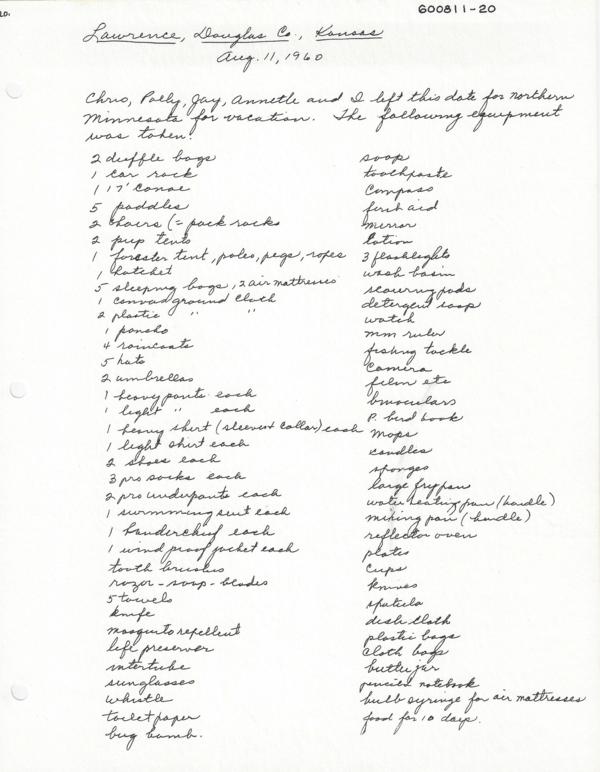 20.
600811-20
Lawrence, Douglas Co., Kansas
Aug. 11, 1960
Chris, Polly, Jay, Annette and I left this date for northern
Minnesota for vacation. The following equipment
was taken:
2 duffle bags
1 car rack
1 17' canoe
5 paddles
2 chairs (= pack racks
2 pup tents
1 forester tent, poles, pegs, ropes
1 hatchet
5 sleeping bags, 2 air mattresses
1 canvas ground cloth
2 plastic " "
1 poncho
4 raincoats
5 hats
2 umbrellas
1 heavy pants each
1 light " each
1 heavy shirt (sleeves + collar) each
1 light shirt each
2 shoes each
3 prs socks each
2 prs underpants each
1 swimming suit each
1 handerchief each
1 wind proof jacket each
tooth brushes
razor - soap - blades
5 towels
knife
mosquito repellent
life preserver
intertube
sunglasses
whistle
toilet paper
bug bomb.
soap
toothpaste
compass
first aid
mirror
lotion
3 flashlights
wash basin
scouring pads
detergent soap
watch
mm ruler
fishing tackle
camera
film etc
binoculars
P. bird book
maps
candles
sponges
large fry pan
water heating pan (handle)
mixing pan (handle)
reflector oven
plates
cups
knives
spatula
dish cloth
plastic bags
cloth bags
butter jar
pencils notebook
bulb syringe for air mattresses
food for 10 days.